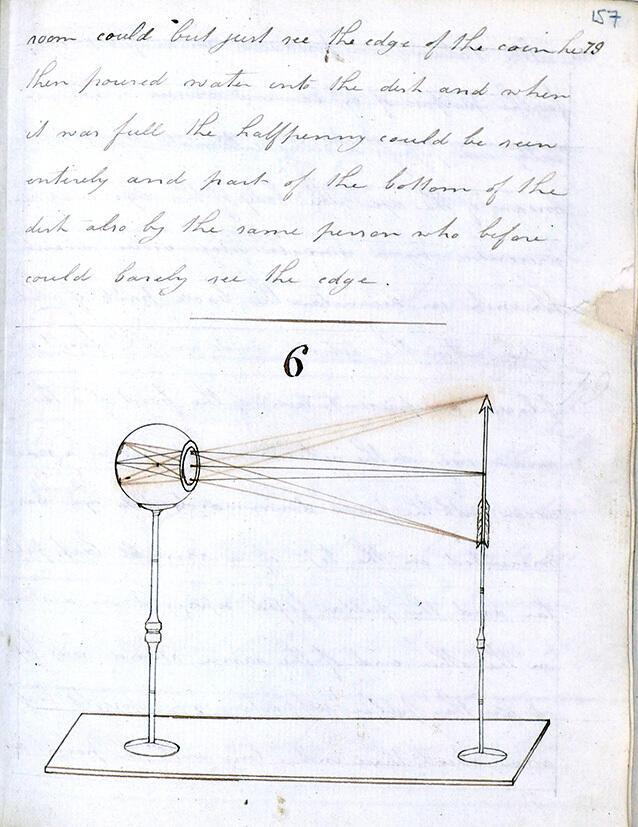 157
room could but just see the edge of the coin he 79
then poured water into the dish and when
it was full the halfpenny could be seen
entirely and part of the bottom of the
dish also by the same person who before
could barely see the edge.
6